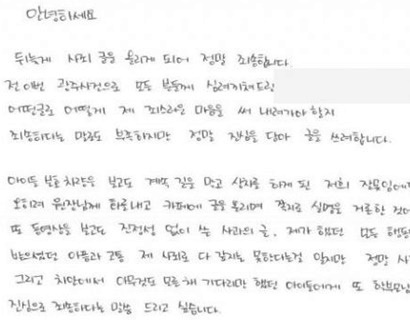 안녕하세요
뒤늦게 사죄 글을 올리게 되어 정말 죄송합니다.
전 이번 광주사건으로 모든 분들께 심려끼쳐드린
어떤글로 어떻게 제 죄스러운 마음을 써 내려가야 할지
죄송하다는 말로도 부족하지만 정말 진심을 담아 글을 쓰려합니다.
아이들 보는 차량을 보고도 계속 길을 막고 상자로 하게 된 저희 잘못임에도
오히려 원장님께 화를내고 카페에 글을 올리며 쪽지로 실명을 거론한 것에
또 동영상을 보고도 진정성 없이 쓴 사과의 글. 제가 했던 모든 행동
받으셨던 아픔과 고통 제 사죄로 다 갚지는 못하다는걸 알지만 정말 사
그리고 차안에서 아무것도 모른채 기다리만 했던 아이들에게 또 학부모님
진심으로 죄송하다는 말씀 드리고 싶습니다.